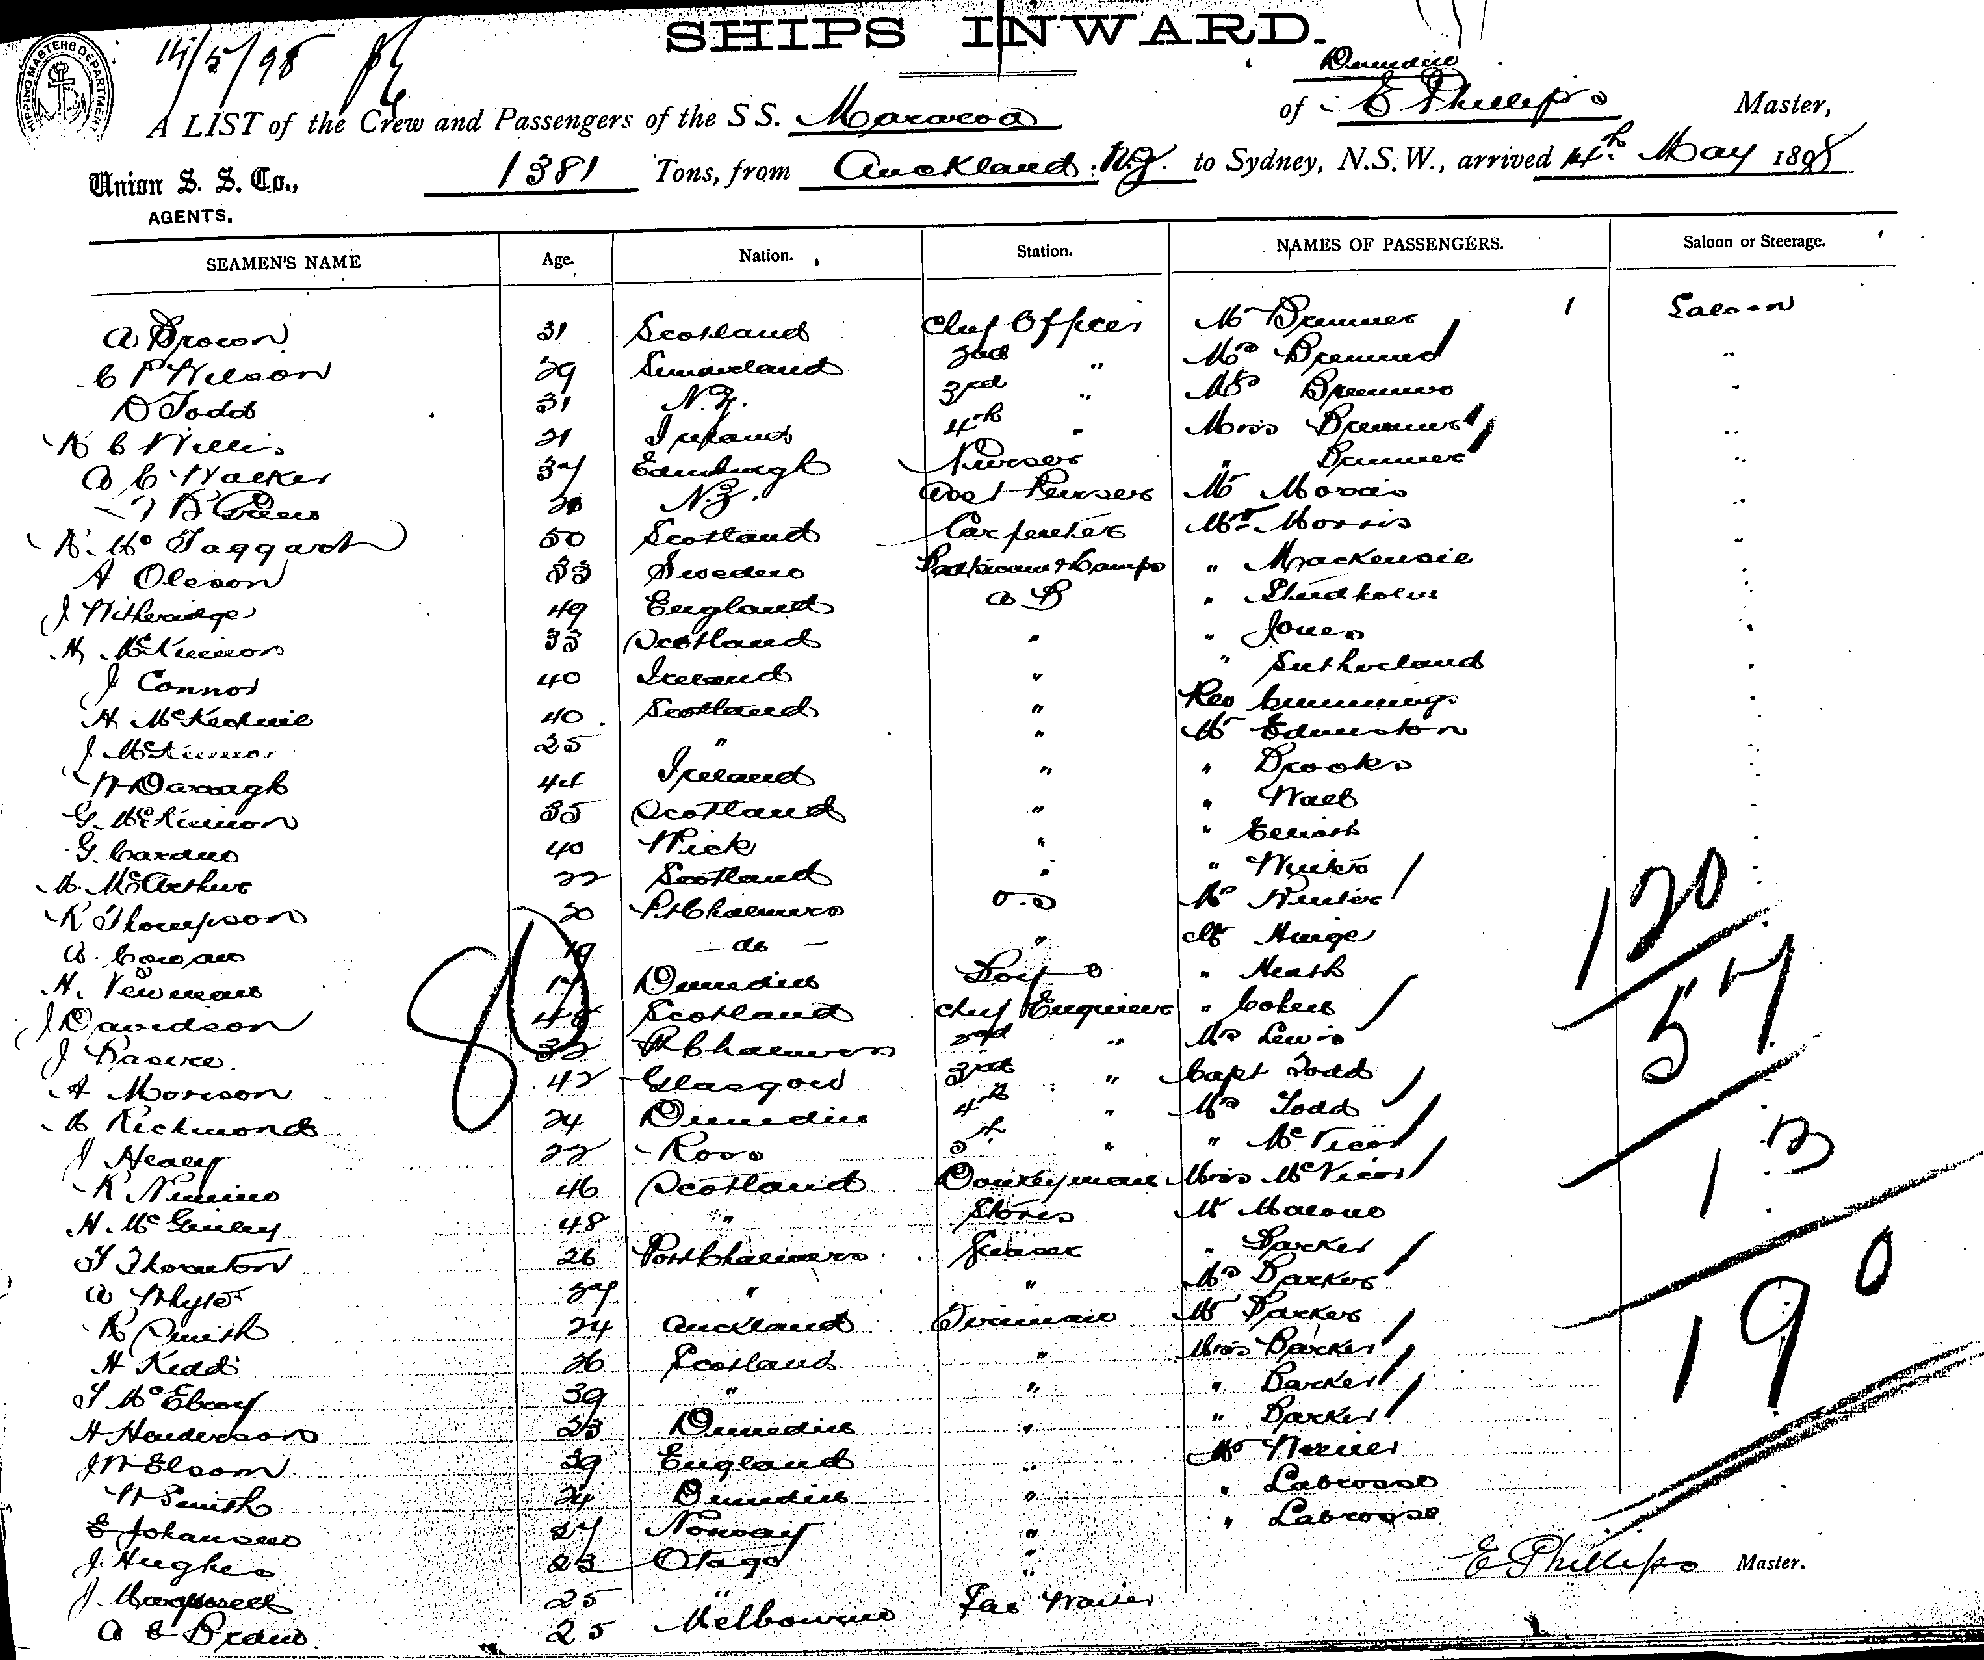 SHIPS INWARD.
SHIPPING MASTERS DEPARTMENT
14/5/98
Dunedin
A LIST of the Crew and Passengers of the SS. Mararoa of E Phillips Master,
Union S. S. Co., 1381 Tons, from Auckland N.Z. to Sydney, N.S.W., arrived 14th May 1898
AGENTS.
SEAMEN'S NAME Age. Nation. Station. NAMES OF PASSENGERS. Saloon or Steerage.
A Brown 31 Scotland Chief Officer Mr Bremner 1 Saloon
C P Wilson 29 Sunderland 2nd " Mrs Bremner "
D Todd 31 N.Z. 3rd " Bremner "
R C Willis 21 Ireland 4th " Miss Bremner "
A C Walker 37 Edinburgh Purser " Bremner "
N.Z. Asst Purser Mr Morris "
McTaggart 50 Scotland Carpenter Morris "
A Oleson 33 Sweden Lamps " Mackensie "
J Witheridge 49 England A B " Studholm "
McKinnon 33 Scotland " " Jones "
J Connor 40 Ireland " " Sutherland "
H McKechnie 40 Scotland " Rev Cummings "
J McKinnon 25 " " Mr Edmiston "
W Darragh 44 Ireland " " Brooks "
G. McKinnon 35 Scotland " "
G. Cardno 40 Wick " " Elliott
M. McArthur 22 Scotland " " Winter
R Thompson 20 Pt Chalmers O.S Mrs Winter
A. Cowan 19 - do - "
H. Newman 17 Dunedin Boy " Heath
J Davidson Scotland Chief Engineer " Cohen
J 32 Pt Chalmers 2nd " Mrs Lewis
A Morison 42 Glasgow 3rd " Capt Todd
Richmond 24 Dunedin 4th " Mrs Todd
J Healy 22 Ross 5th " " McVicar
R Nimmo 46 Scotland Donkeyman Miss McVicar
H. McGinley 48 " Stores Mr Malone
T Thornton 26 Port Chalmers Greaser " Barker
A Whyte 27 " " Mrs Barker
R Smith 24 Auckland Fireman Mr Barker
H Kidd 26 Scotland " Miss Barker
T McElroy 39 " " " Barker
H Henderson 23 Dunedin " " Barker
J W Elsom 39 England " Mr
W Smith 24 Dunedin " " Labrosse
E Johansen 27 Norway " " Labrosse
J. Hughes 23 Otago "
J. Maxwell 25 " "
A E Brand 25 Melbourne Fore Waiter
80
120
57
13
190
E Phillips Master.